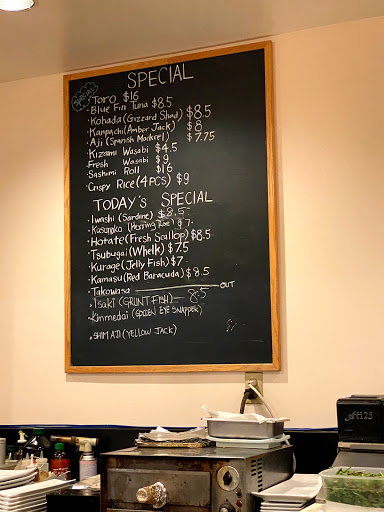 SPECIAL
SPECIAL
• Toro $16
• Blue Fin Tuna $8.5
• Kohada (Gizzard Shad) $8.5
• Kanpachi (Amber Jack) $8
• Aji (Spanish Mackrel) $7.75
• Kizami Wasabi $4.5
• Fresh Wasabi $9
• Sashimi Roll $16
• Crispy Rice (4 PCS) $9
TODAY'S SPECIAL
• Iwashi (Sardine) $8.5
• Kazunoko (Herring Roe) $7
• Hotate (Fresh Scallop) $8.5
• Tsubugai (Whelk) $7.5
• Kurage (Jelly Fish) $7
• Kamasu (Red Baracuda) $8.5
• Takowasa OUT
• Isaki (GRUNT FISH) 8.5
• Kinmedai (GOLDEN EYE SNAPPER)
• SHIMAJI (YELLOW JACK)